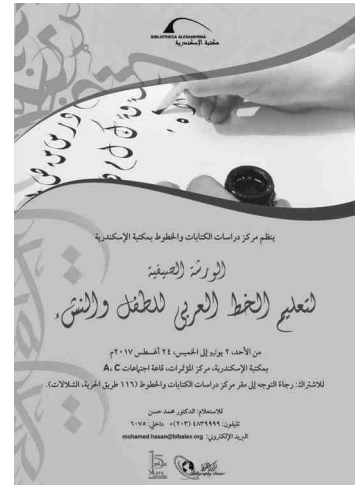 BIBLIOTHECA ALEXANDRINA
مكتبة الإسكندرية
ينظم مركز دراسات الكتابات والخطوط بمكتبة الإسكندرية
الورشة الصيفية
لتعليم الخط العربي للطفل والنشء
من الأحد، ٢ يوليو إلى الخميس، ٢٤ أغسطس ٢٠١٧م
بمكتبة الإسكندرية، مركز المؤتمرات، قاعة اجتماعات A، C
للاشتراك: رجاءً التوجه إلى مقر مركز دراسات الكتابات والخطوط (١١٦ طريق الحرية، الشلالات).
للاستعلام: الدكتور محمد حسن
تليفون: ٤٨٣٩٩٩٩ (٢٠٣)+ داخلي: ٦٠٧٥
البريد الإلكتروني: mohamed.hasan@bibalex.org